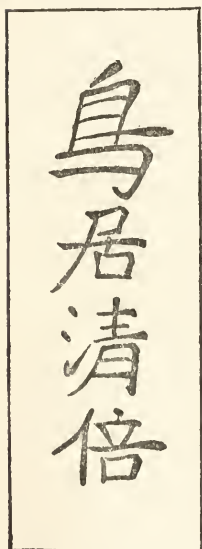 鳥居清倍